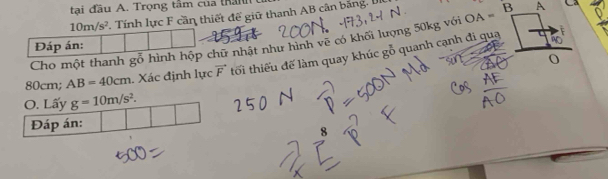 tại đầu A. Trọng tâm của thanh
10m/s². Tính lực F cần thiết để giữ thanh AB cân bằng.
200N. -173,2-1 N.
Đáp án:
Cho một thanh gỗ hình hộp chữ nhật như hình vẽ có khối lượng 50kg với OA =
80cm; AB = 40cm. Xác định lực F tối thiểu để làm quay khúc gỗ quanh cạnh đi qua
O. Lấy g = 10m/s².
250 N
P = 500N Md
sin
cos AE/AO
Đáp án:
500 =
8
P F
B A
F
O